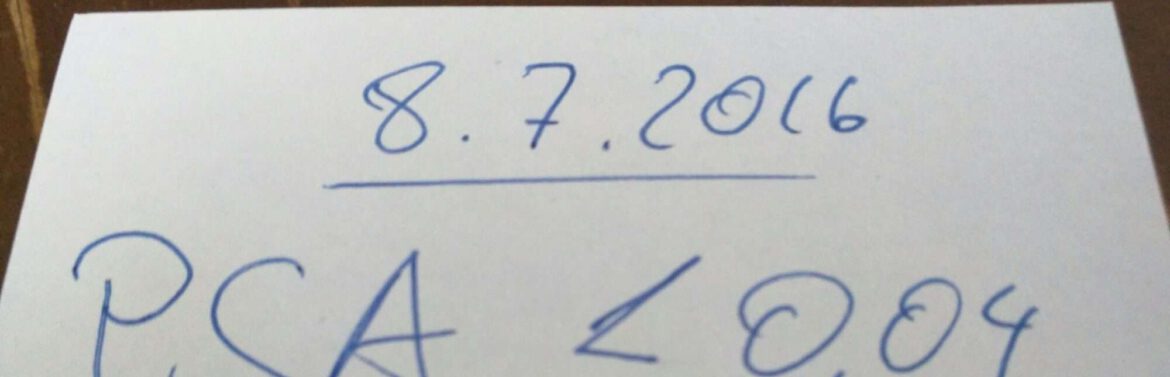 8.7.2016
PSA < 0,04